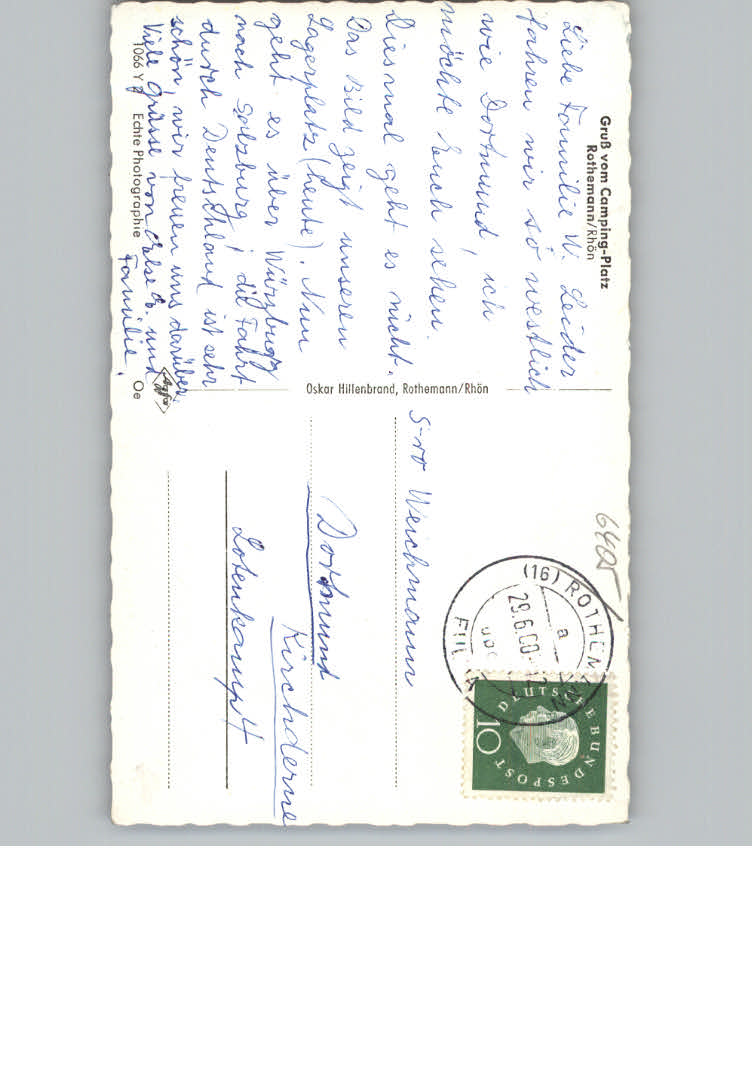 Gruß vom Camping-Platz
Rothemann/Rhön
Liebe Familie W. Leider
fahren wir so westlich
wie Dortmund, ich
möchte Euch sehen.
Diesmal geht es nicht.
Das Bild zeigt unseren
Lagerplatz (heute). Nun
geht es über Würzburg
nach Salzburg! die Fahrt
durch Deutschland ist sehr
schön, wir freuen uns darüber.
Viele Grüsse von und
Familie.
1066 Y Echte Photographie
Agfa
Oe
Oskar Hillenbrand, Rothemann/Rhön
6405
(16) ROTHEM NN
a
29.6.60
FUL A
DEUTSCHE BUNDESPOST
10
Weichmann
Dortmund
Kirchderne